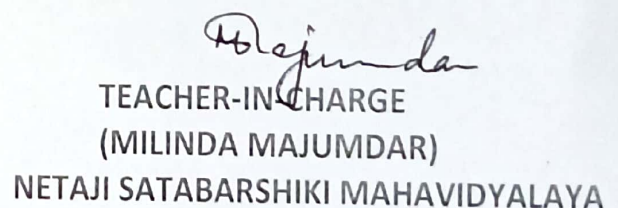 MMajumdar
TEACHER-IN-CHARGE
(MILINDA MAJUMDAR)
NETAJI SATABARSHIKI MAHAVIDYALAYA